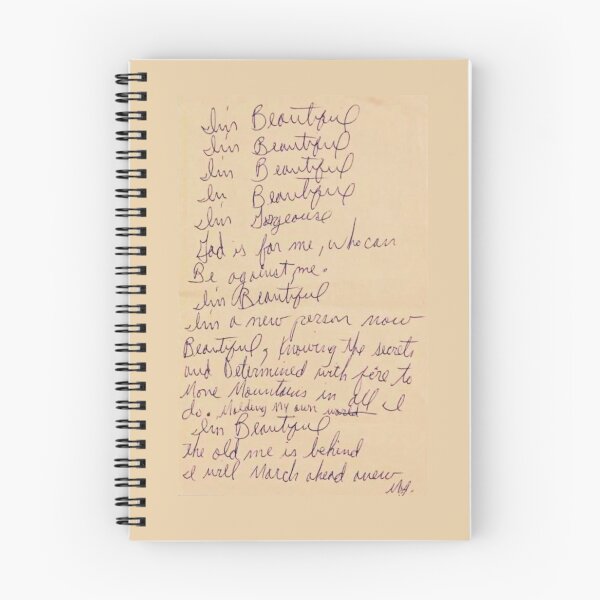 I'm Beautiful
I'm Beautiful
I'm Beautiful
I'm Beautiful
I'm Gorgeouse
God is for me, who can
Be against me.
I'm Beautiful
I'm a new person now
Beautiful, knowing the secrets
and Determined with fire to
Move Mountains in all I
do. Molding My own world
I'm Beautiful
The old me is behind
I will March ahead anew
MJ.